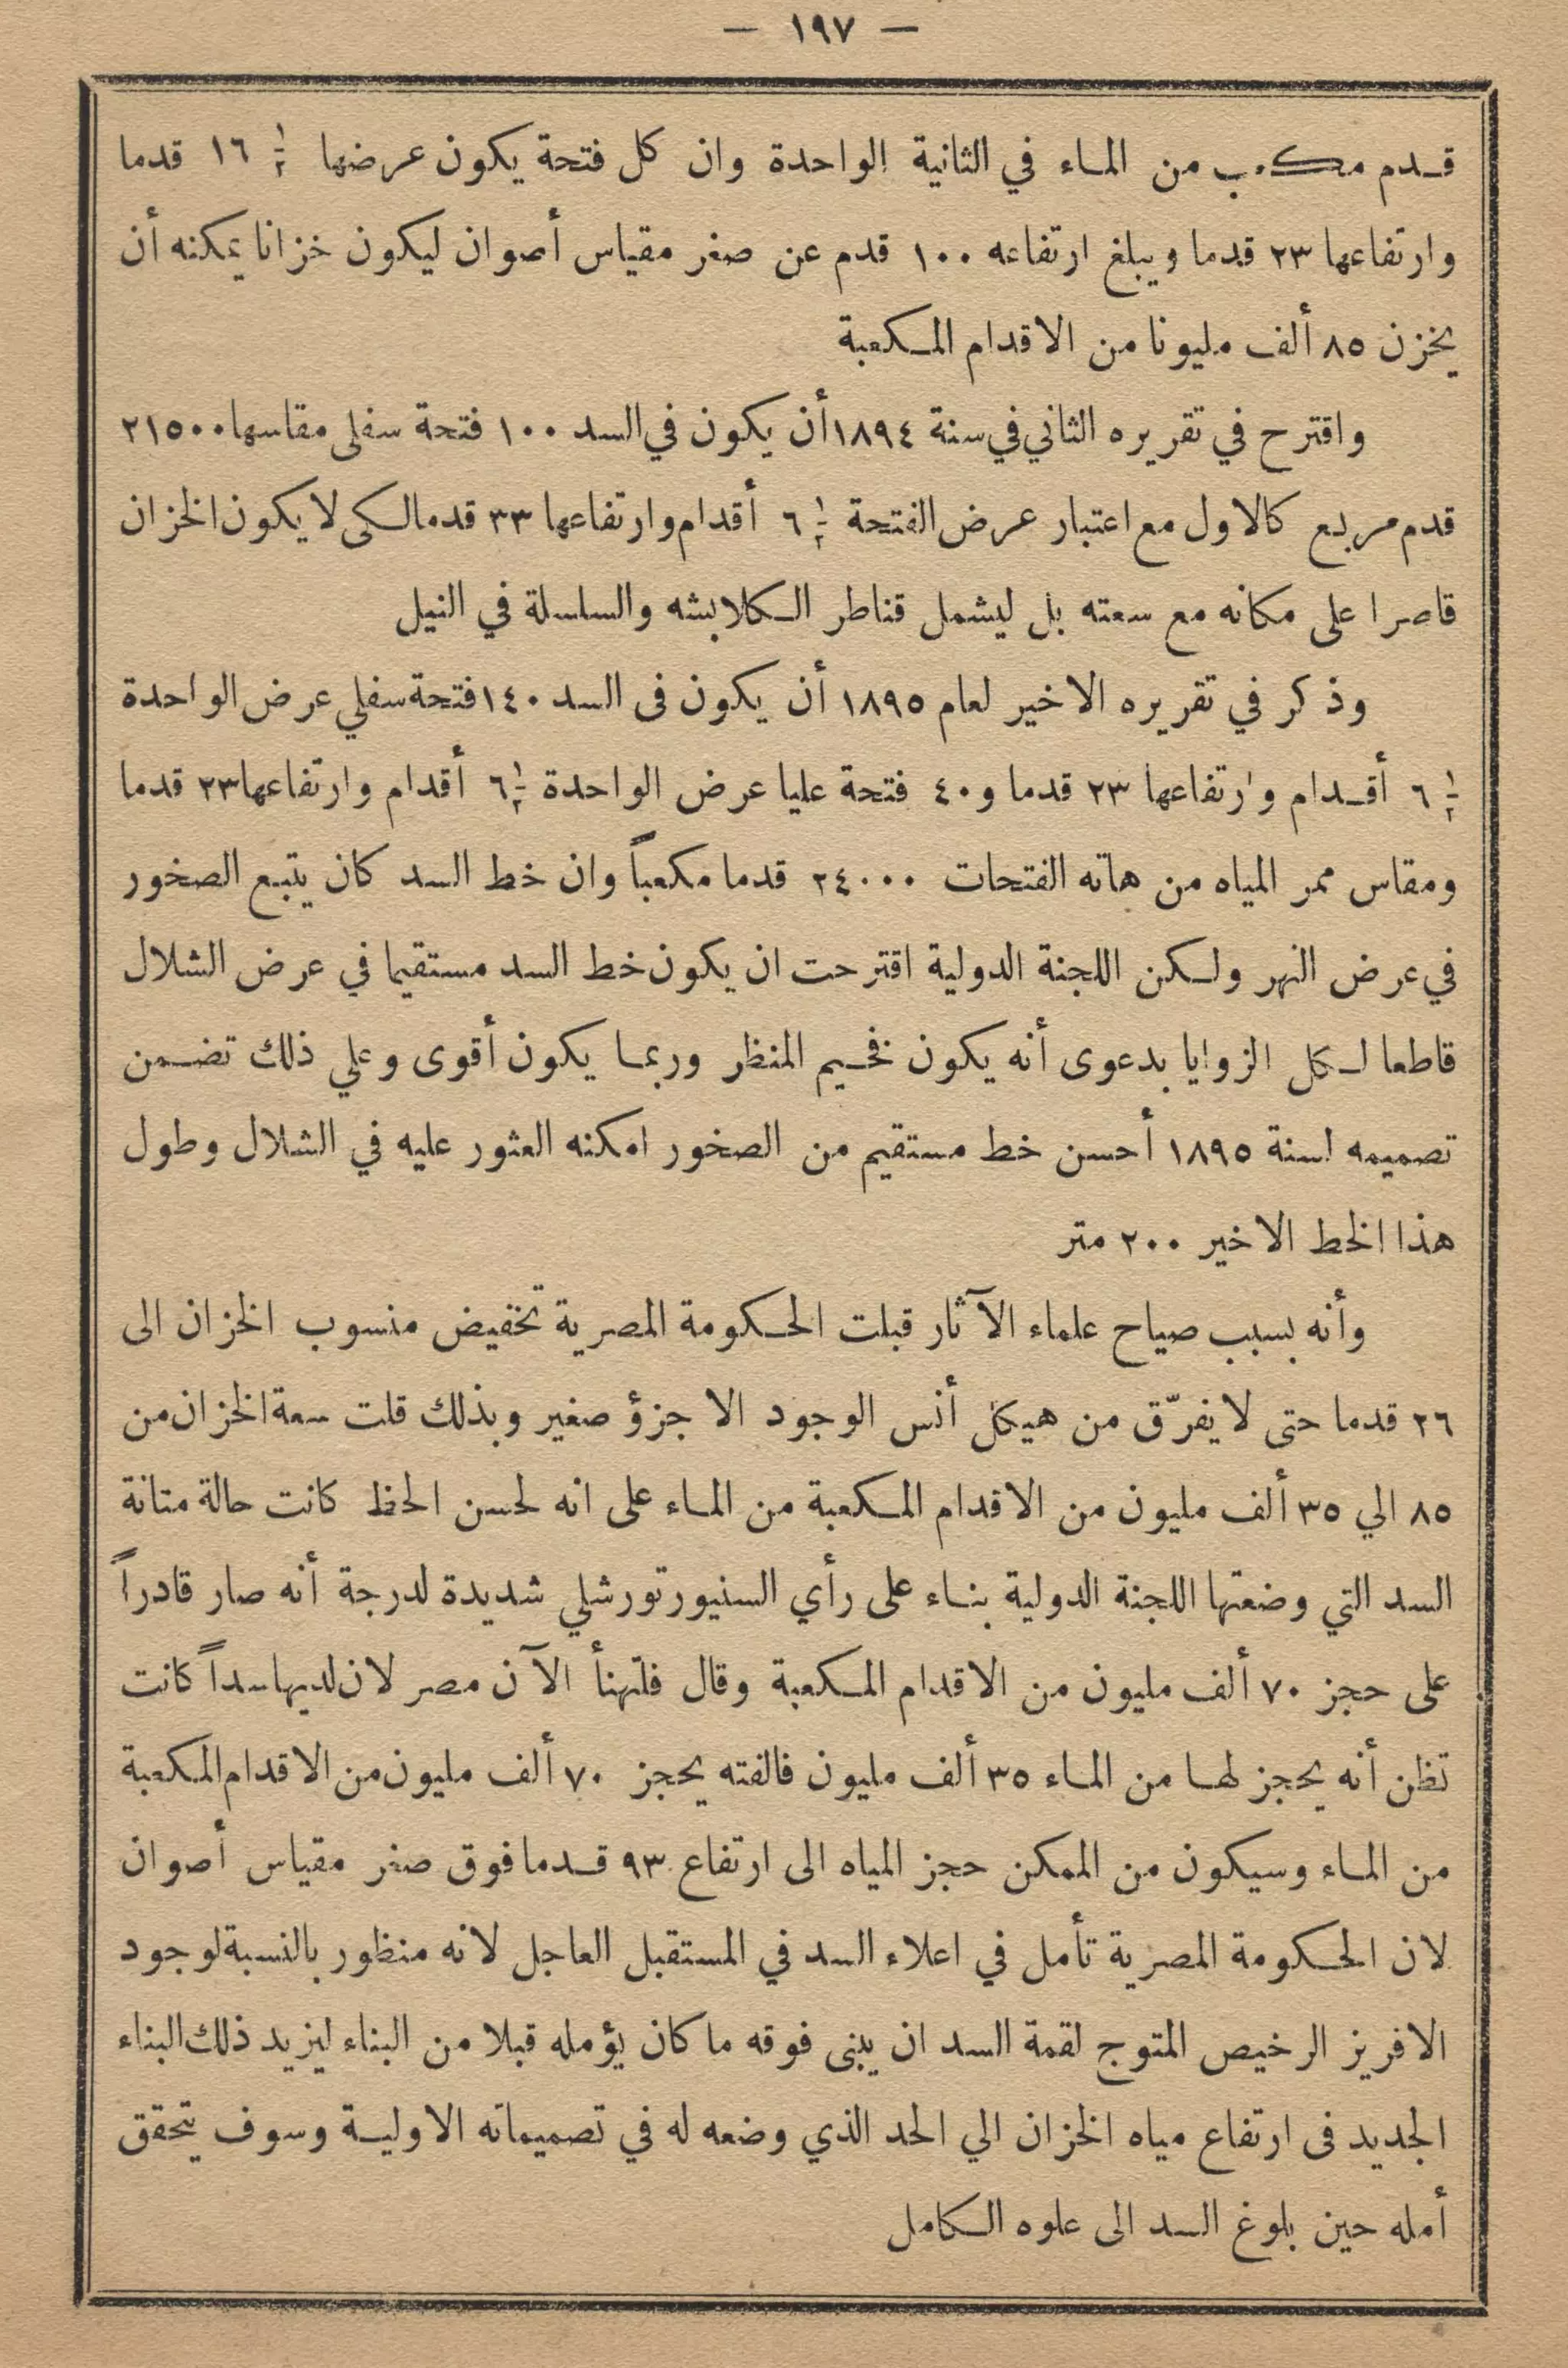 — ١٩٧ —
قدم مكعب من الماء في الثانية الواحدة وان كل فتحة يكون عرضها ١/٢ ١٦ قدما
وارتفاعها ٢٣ قدما ويبلغ ارتفاعه ١٠٠ قدم عن صفر مقياس أصوان ليكون خزانا يمكنه أن
يخزن ٨٥ ألف مليونا من الاقدام المكعبة
واقترح في تقريره الثاني في سنة ١٨٩٤ أن يكون في السد ١٠٠ فتحة سفلى مقاسها ٢١٥٠٠
قدم مربع كالاول مع اعتبار عرض الفتحة ١/٢ ٦ أقدام وارتفاعها ٣٣ قدما لكى لا يكون الخزان
قاصرا على مكانه مع سعته بل ليشمل قناطر الكلابشه والسلسلة في النيل
وذكر في تقريره الاخير لعام ١٨٩٥ أن يكون فى السد ١٤٠ فتحة سفلي عرض الواحدة
١/٢ ٦ أقدام وارتفاعها ٢٣ قدما و٤٠ فتحة عليا عرض الواحدة ١/٢ ٦ أقدام وارتفاعها ٢٣ قدما
ومقاس ممر المياه من هاته الفتحات ٢٤٠٠٠ قدما مكعباً وان خط السد كان يتبع الصخور
في عرض النهر ولكن اللجنة الدولية اقترحت ان يكون خط السد مستقيما في عرض الشلال
قاطعا لكل الزوايا بدعوى أنه يكون فخيم المنظر وربما يكون أقوى وعلي ذلك تضمن
تصميمه لسنة ١٨٩٥ أحسن خط مستقيم من الصخور امكنه العثور عليه في الشلال وطول
هذا الخط الاخير ٢٠٠ متر
وأنه بسبب صياح علماء الآثار قبلت الحكومة المصرية تخفيض منسوب الخزان الى
٢٦ قدما حتى لا يفرّق من هيكل أنس الوجود الا جزؤ صغير وبذلك قلت سعة الخزان من
٨٥ الي ٣٥ ألف مليون من الاقدام المكعبة من الماء على انه لحسن الحظ كانت حالة متانة
السد التي وضعتها اللجنة الدولية بناء على رأي السنيور تورشلي شديدة لدرجة أنه صار قادراً
على حجز ٧٠ ألف مليون من الاقدام المكعبة وقال فلتهنأ الآن مصر لان لديها سداً كانت
تظن أنه يحجز لها من الماء ٣٥ ألف مليون فالفته يحجز ٧٠ ألف مليون من الاقدام المكعبة
من الماء وسيكون من الممكن حجز المياه الى ارتفاع ٩٣ قدما فوق صفر مقياس أصوان
لان الحكومة المصرية تأمل في اعلاء السد في المستقبل العاجل لانه منظور بالنسبة لوجود
الافريز الرخيص المتوج لقمة السد ان يبنى فوقه ما كان يؤمله قبلا من البناء ليزيد ذلك البناء
الجديد فى ارتفاع مياه الخزان الي الحد الذي وضعه له في تصميماته الاولية وسوف يتحقق
أمله حين بلوغ السد الى علوه الكامل